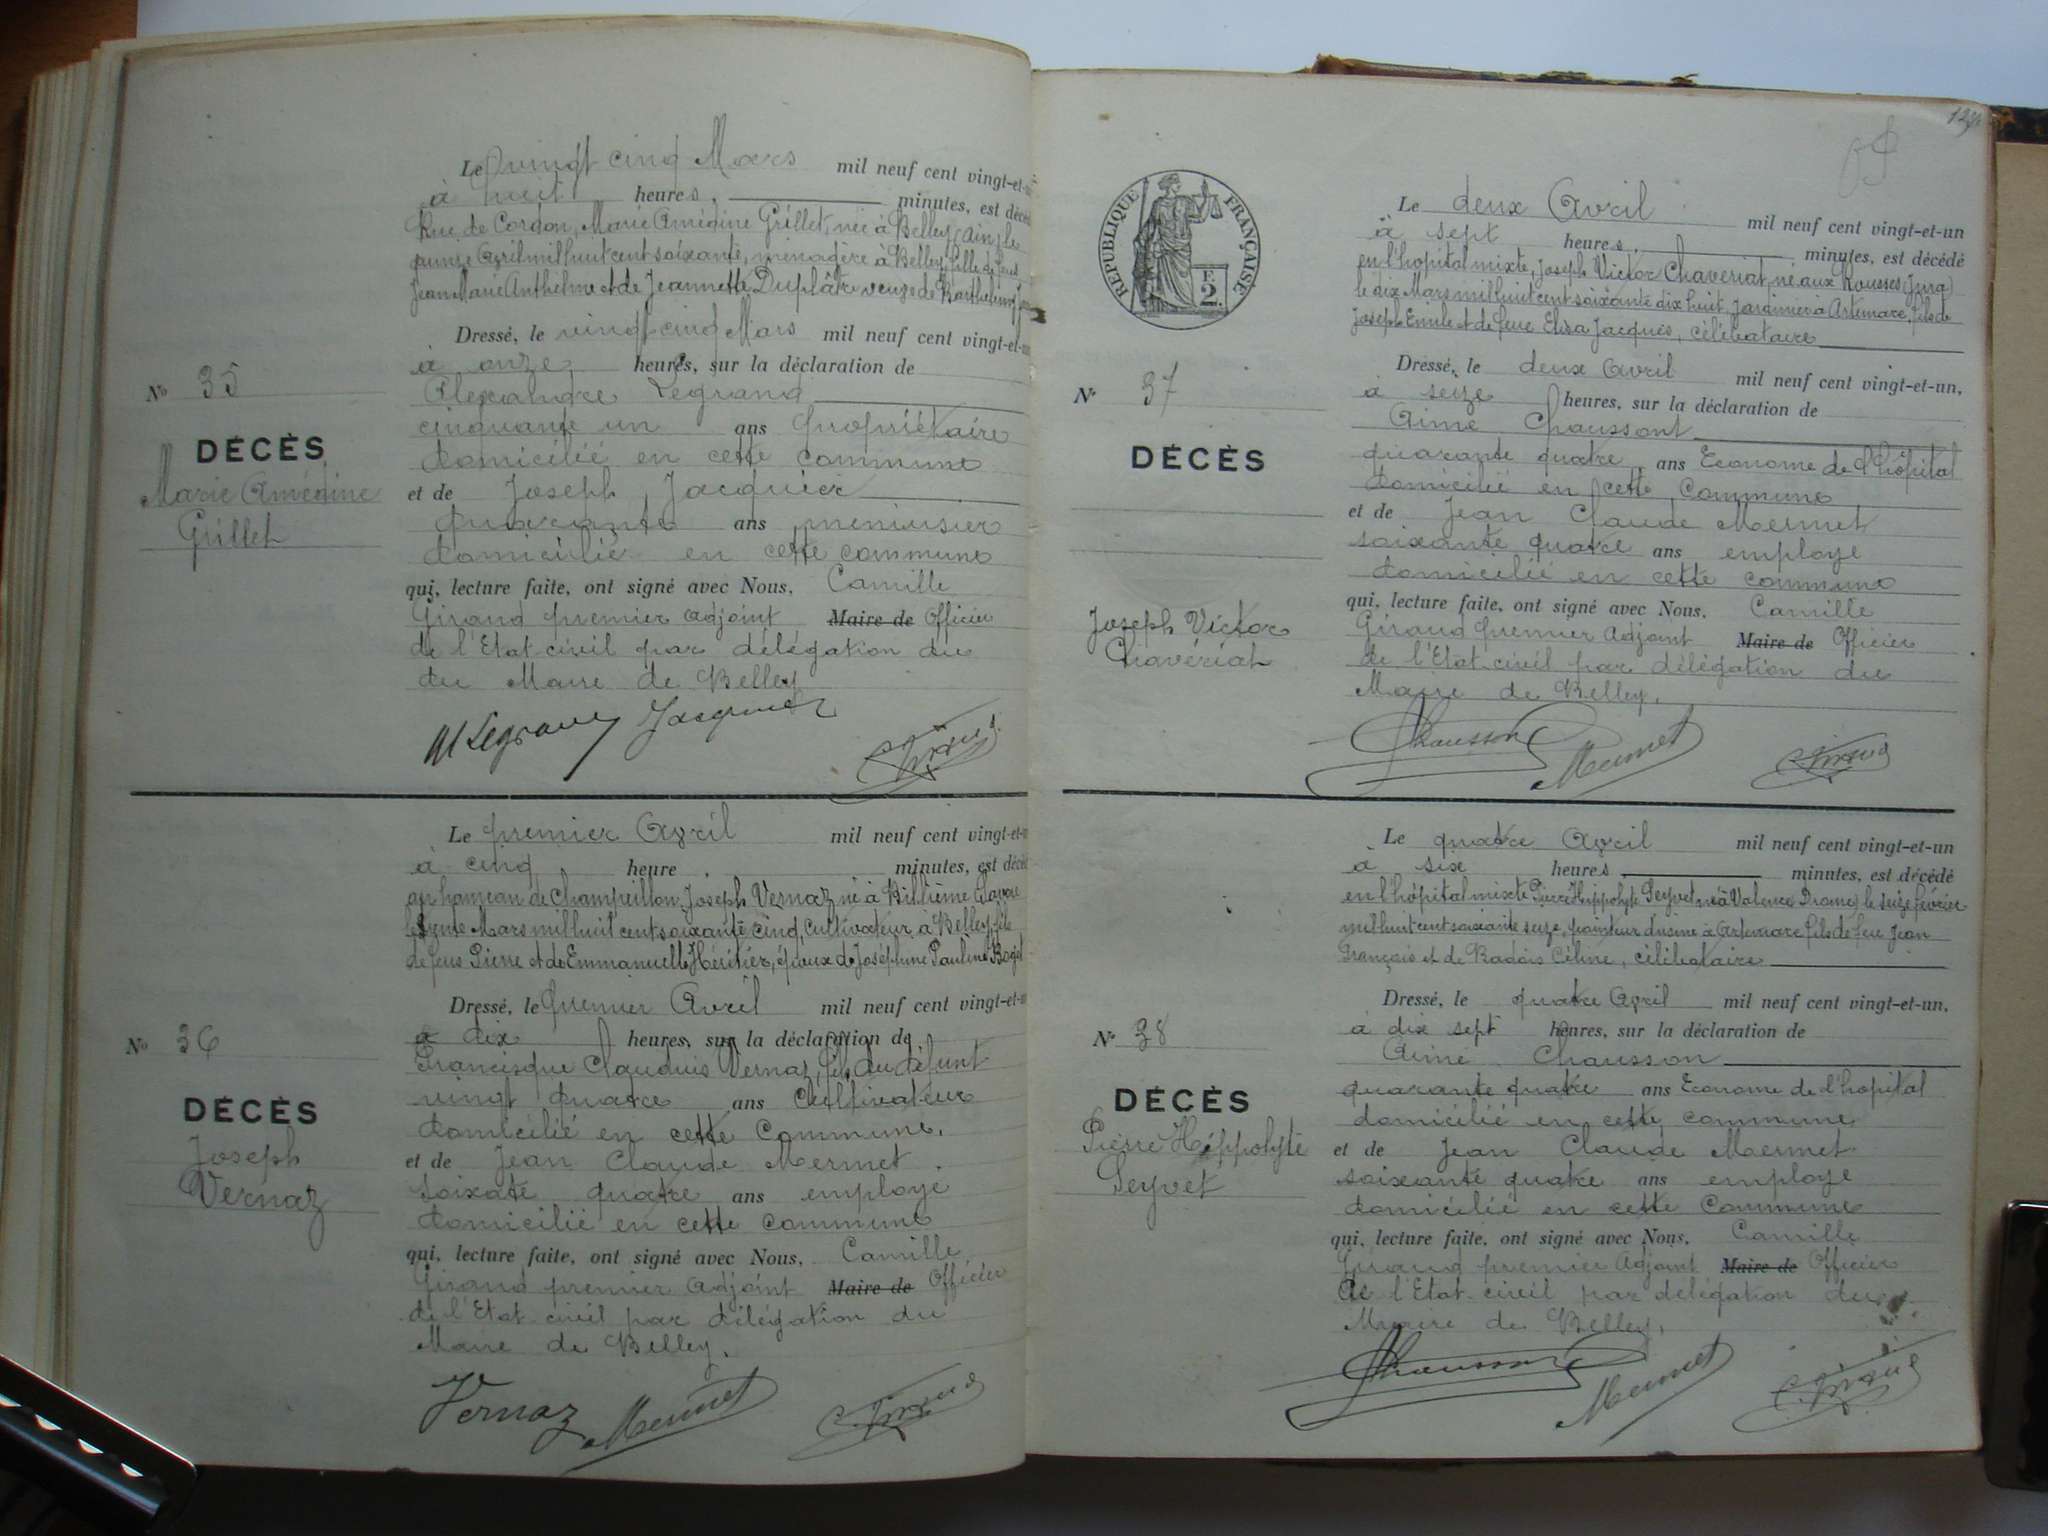 Le vingt cinq Mars mil neuf cent vingt-et-un
à huit heures, minutes, est décé
Rue de Cordon, Marie Amédine Grillet, née à Belley (Ain) le
quinze Avril mil huit cent soixante, ménagère à Belley, fille de feus
Jean Marie Anthelme et de Jeannette Duplâtre veuve de Barthelemy
Dressé, le vingt-cinq Mars mil neuf cent vingt-et-un
à onze heures, sur la déclaration de
Alexandre Legrand
cinquante un ans propriétaire
domicilié en cette commune
et de Joseph Jacquier
quarante ans menuisier
domicilié en cette commune
qui, lecture faite, ont signé avec Nous, Camille
Giraud premier adjoint Maire de Officier
de l'Etat-civil par délégation du
du Maire de Belley
Legrand Jacquier
C. Giraud
No 35
DÉCÈS
Marie Amédine
Grillet
Le premier Avril mil neuf cent vingt-et-un
à cinq heure minutes, est décé
au hameau de Champeillon Joseph Vernaz né à Billième Savoie
le trente Mars mil huit cent soixante cinq, cultivateur à Belley, fils
de feus Pierre et de Emmanuelle Héritier, époux de Joséphine Pauline Bogot
Dressé, le premier Avril mil neuf cent vingt-et-un
à dix heures, sur la déclaration de
Francisque Claudius Vernaz, fils du défunt
vingt quatre ans Cultivateur
domicilié en cette Commune.
et de Jean Claude Mermet.
soixate quatre ans employé
domicilié en cette commune
qui, lecture faite, ont signé avec Nous, Camille
Giraud premier Adjoint Maire de Officier
de l'Etat civil par délégation du
Maire de Belley.
Vernaz Mermet C. Giraud
No 36
DÉCÈS
Joseph
Vernaz
RÉPUBLIQUE FRANÇAISE
F.
2
Le deux Avril mil neuf cent vingt-et-un
à sept heures, minutes, est décédé
en l'hopital mixte, Joseph Victor Chaveriat, né aux Rousses (Jura)
le dix Mars mil huit cent soixante dix huit, Jardinier à Artemare, fils de
Joseph Emile et de feue Elisa Jacques, célibataire
Dressé, le deux Avril mil neuf cent vingt-et-un,
à seize heures, sur la déclaration de
Aimé Chaussont
quarante quatre ans Econome de l'hôpital
domicilié en cette Commune
et de Jean Claude Mermet
soixante quatre ans employé
domicilié en cette commune
qui, lecture faite, ont signé avec Nous. Camille
Giraud premier Adjoint Maire de Officier
de l'Etat-civil par délégation du
Maire de Belley.
Chausson Mermet C. Giraud
No 37
DÉCÈS
Joseph Victor
Chavériat
Le quatre Avril mil neuf cent vingt-et-un
à six heures minutes, est décédé
en l'hôpital mixte Pierre Hippolyte Seyvet né à Valence, Drome, le seize février
mil huit cent soixante seize, d'usine à Artemare fils de feu Jean
François et de Badois Céline, célibataire
Dressé, le quatre Avril mil neuf cent vingt-et-un,
à dix sept heures, sur la déclaration de
Aimé Chausson
quarante quatre ans Econome de l'hopital
domicilié en cette commune
et de Jean Claude Mermet
soixante quatre ans employé
domicilié en cette Commune
qui, lecture faite, ont signé avec Nous, Camille
Giraud premier Adjoint Maire de Officier
de l'Etat-civil par délégation du
Maire de Belley.
Chausson Mermet C. Giraud
No 38
DÉCÈS
Pierre Hippolyte
Seyvet